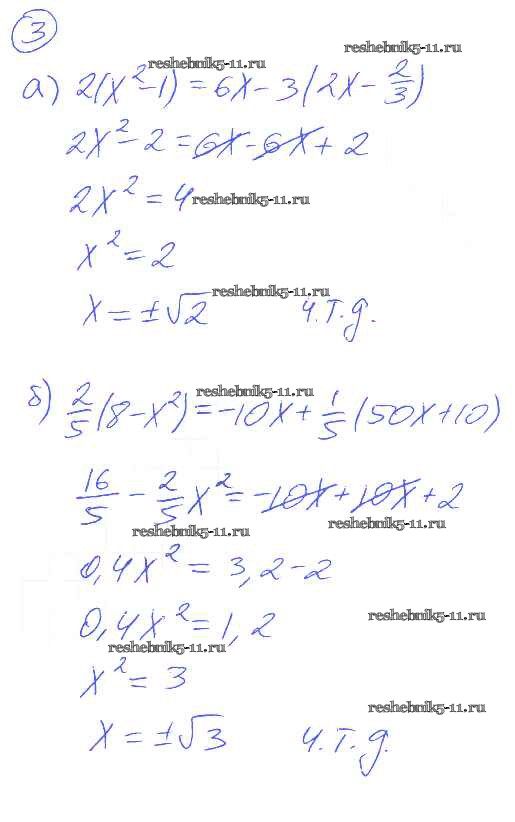 3
reshebnik5-11.ru
reshebnik5-11.ru
а) 2(x²-1)=6x-3(2x-2/3)
2x²-2=6x-6x+2
2x²=4
reshebnik5-11.ru
x²=2
reshebnik5-11.ru
x=±√2 ч.т.д.
reshebnik5-11.ru
б) 2/5(8-x²)=-10x+1/5(50x+10)
16/5-2/5x²=-10x+10x+2
reshebnik5-11.ru
reshebnik5-11.ru
0,4x²=3,2-2
0,4x²=1,2
reshebnik5-11.ru
reshebnik5-11.ru
x²=3
reshebnik5-11.ru
x=±√3 ч.т.д.